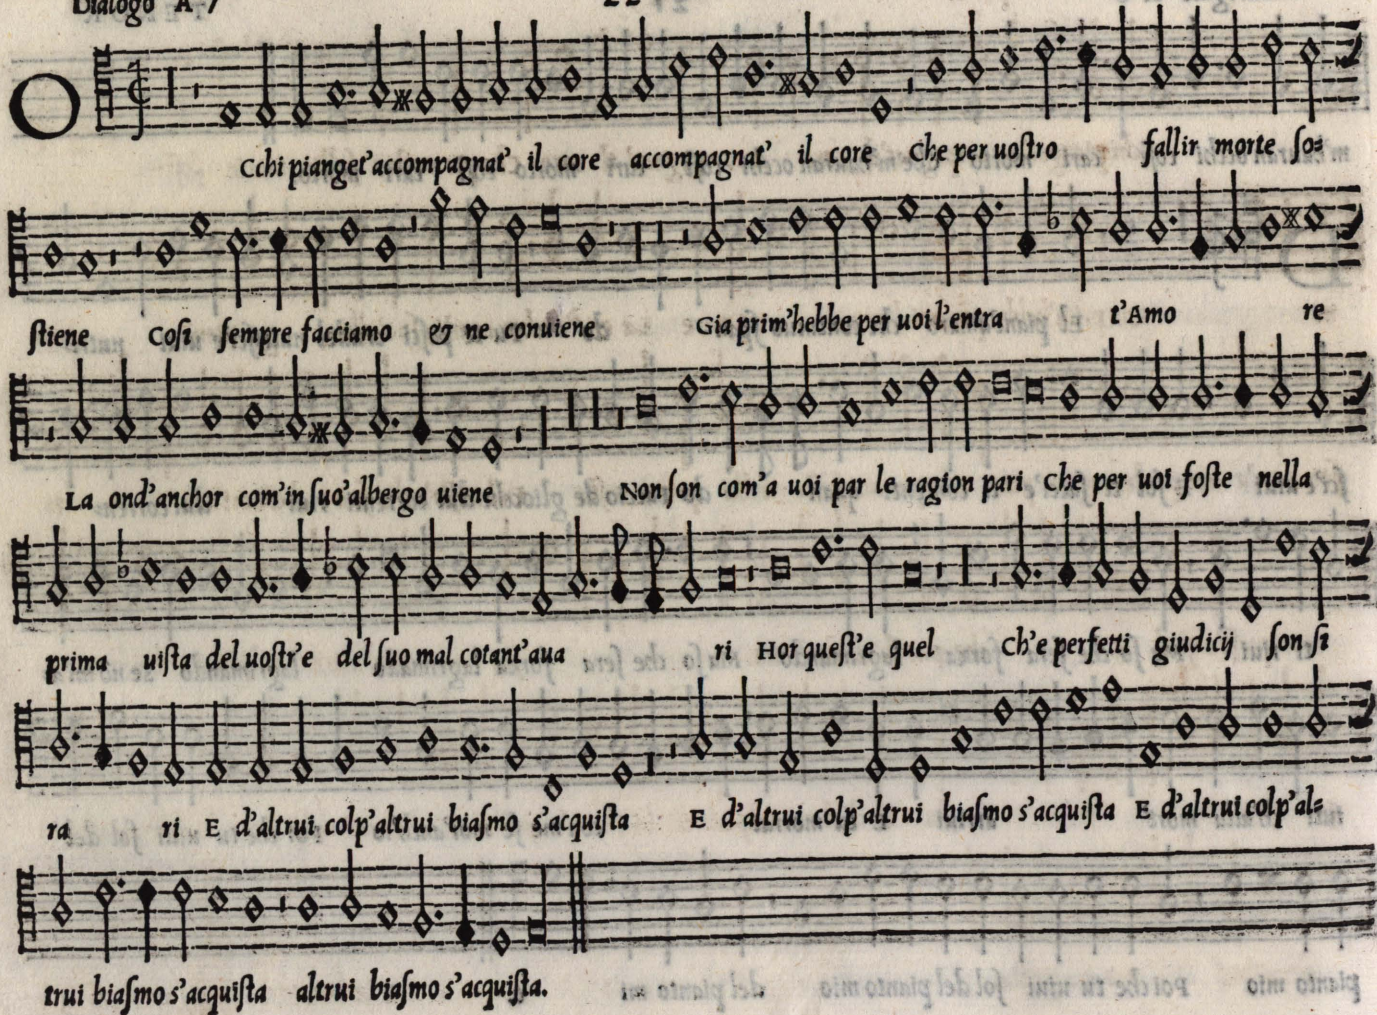 Dialogo A 7 22
O
Cchi pianget'accompagnat' il core accompagnat' il core Che per uoſtro fallir morte ſo=
ſtiene Coſi ſempre facciamo & ne conuiene Gia prim'hebbe per uoi l'entra t'Amo re
La ond'anchor com'in ſuo'albergo uiene Non ſon com'a uoi par le ragion pari Che per uoi foſte nella
prima uiſta del uoſtr'e del ſuo mal cotant'aua ri Hor queſt'e quel Ch'e perfetti giudicij ſon ſi
ra ri E d'altrui colp'altrui biaſmo s'acquiſta E d'altrui colp'altrui biaſmo s'acquiſta E d'altrui colp'al=
trui biaſmo s'acquiſta altrui biaſmo s'acquiſta.